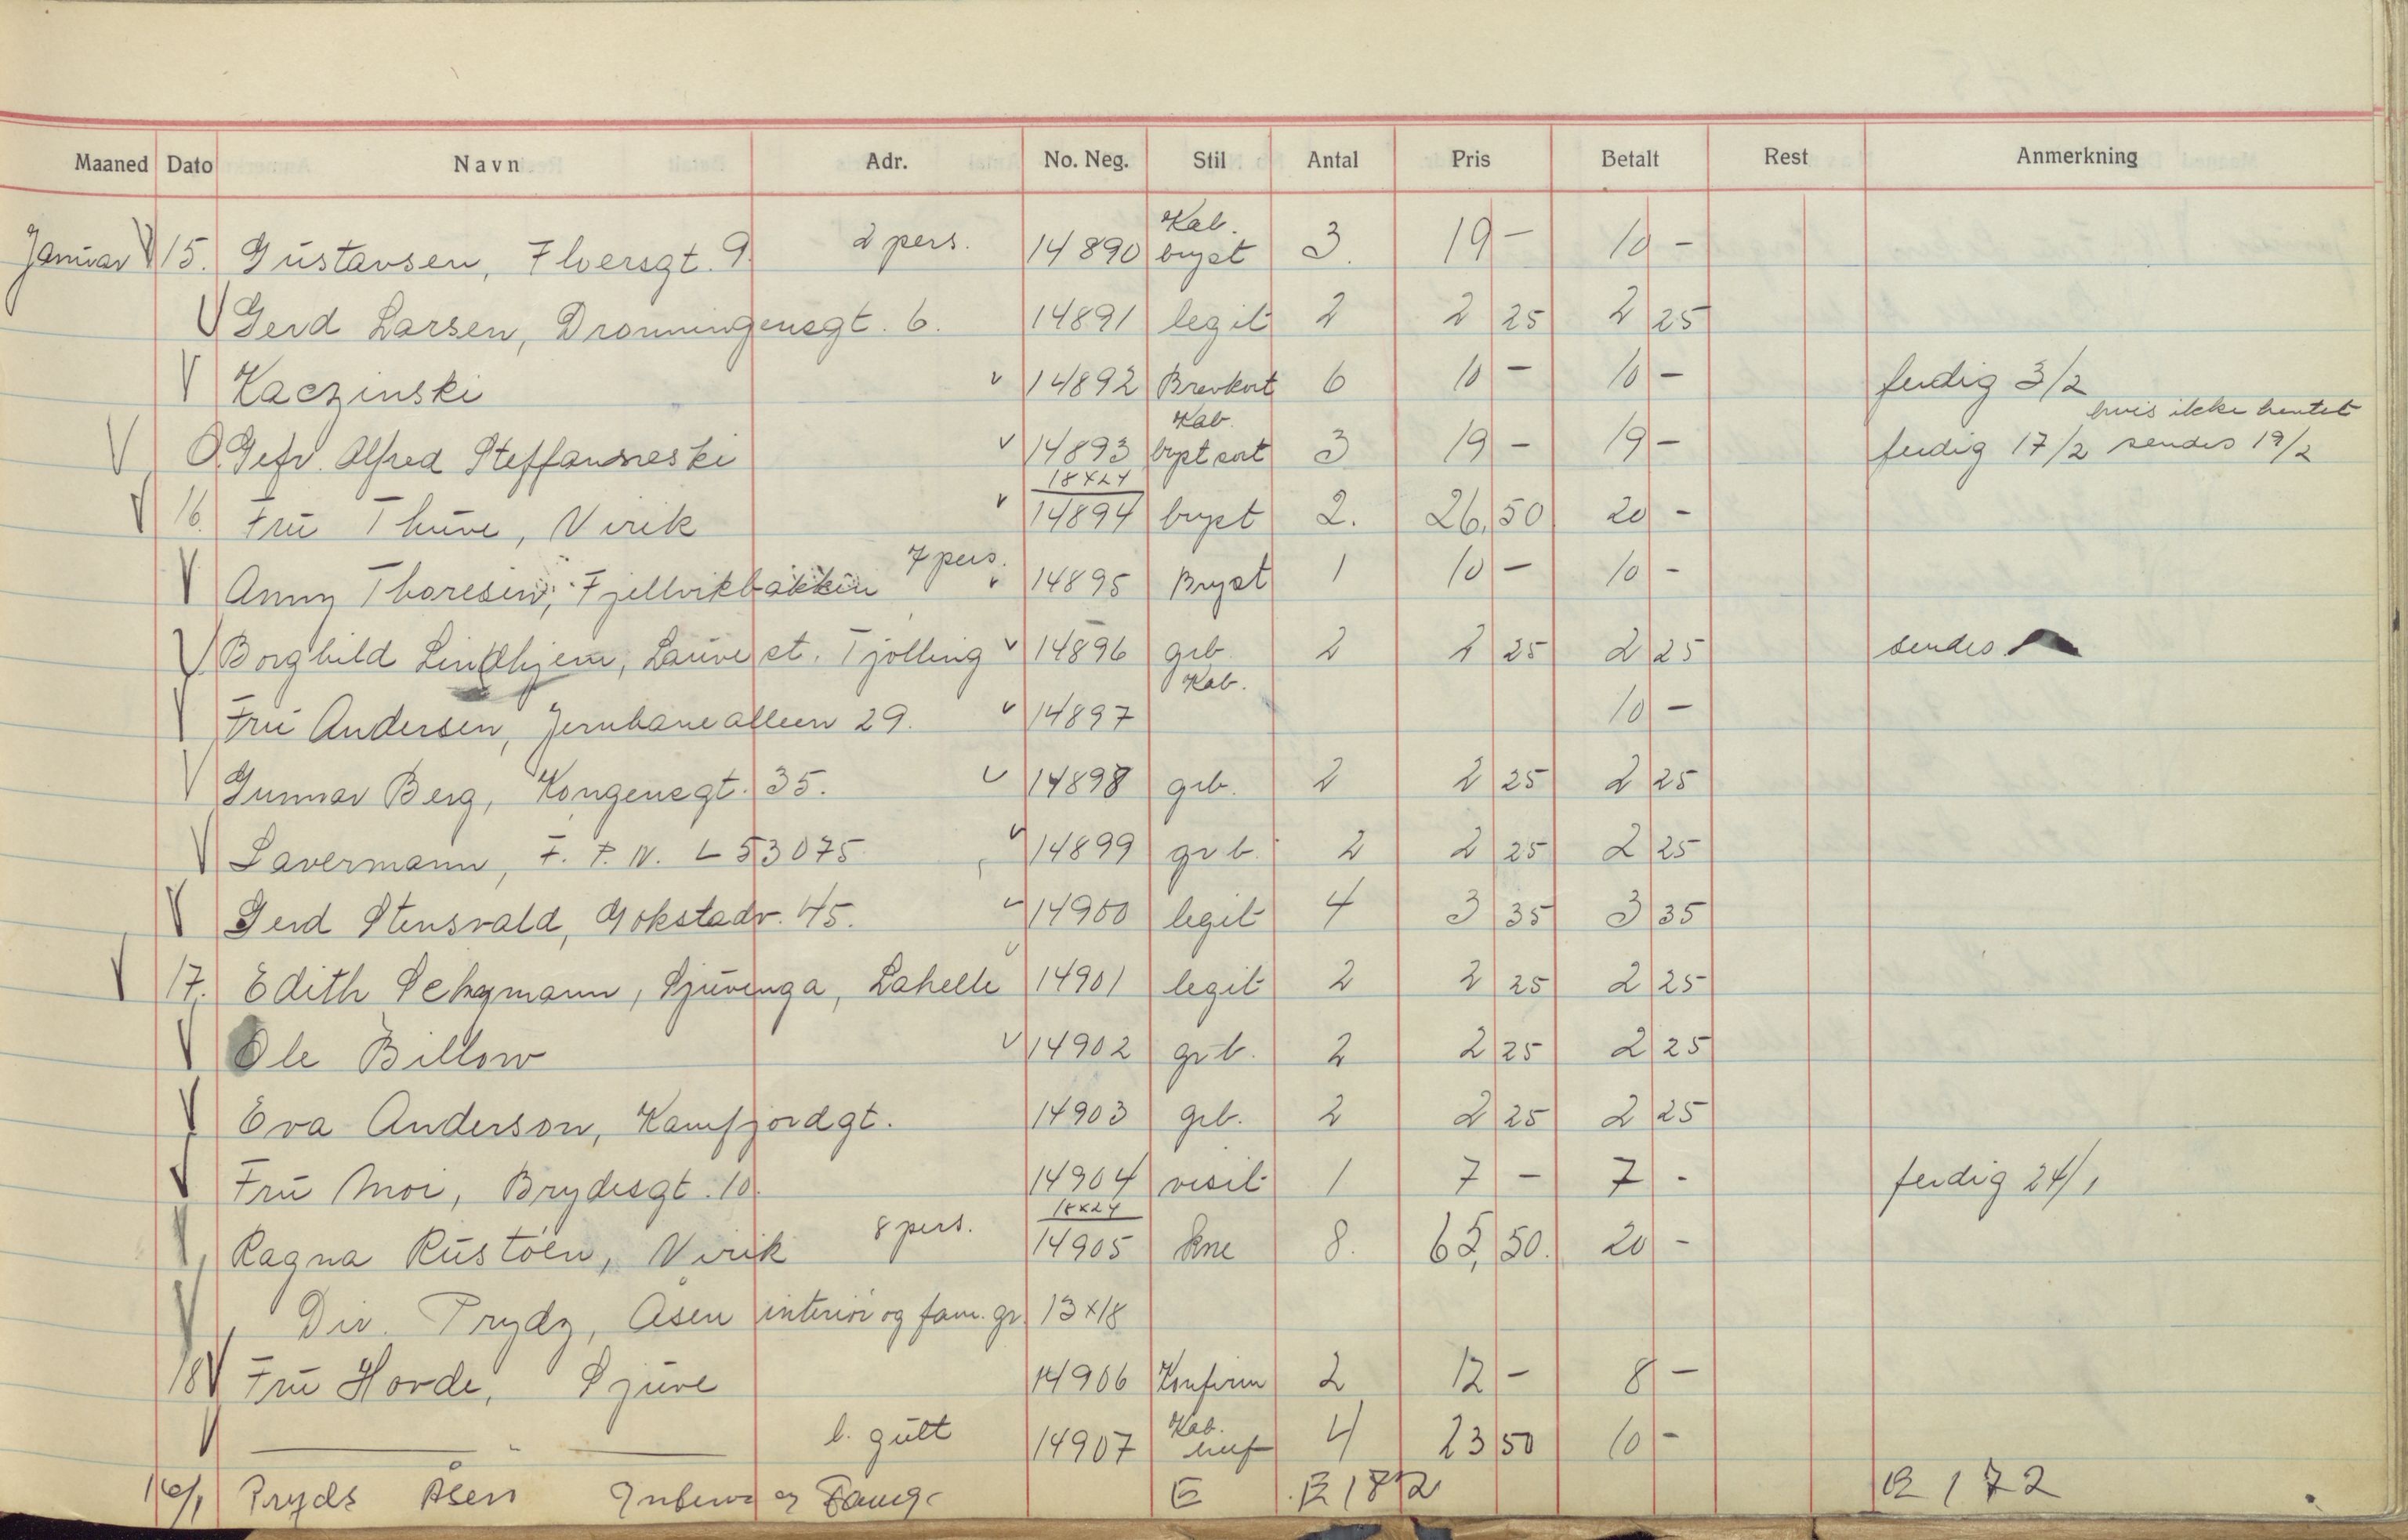 Maaned Dato Navn Adr. No. Neg. Stil Antal Pris Betalt Rest Anmerkning
Januar 15. Gustavsen, Floersgt. 9. 2 pers. 14890 Kab. bryst 3. 19 - 10 -
Gerd Larsen, Dronningensgt. 6. 14891 legit 2 2 25 2 25
Kaczinski 14892 Brevkort 6 10 - 10 - ferdig 3/2
Gefr. Alfred 14893 Kab. bryst sort 3 19 - 19 - ferdig 17/2 hvis ikke hentet sendes 19/2
16. Fru Thuve, Virik 18x24 14894 bryst 2. 26,50 20 -
Anny Thoresen, Fjellvikbakken 7 pers. 14895 Bryst 1 10 - 10 -
Borghild Lindhjem, Lauve st. Tjølling 14896 grb. 2 2 25 2 25 sendes
Fru Andersen, Jernbanealleen 29. 14897 Kab. 10 -
Gunnar Berg, Kongensgt. 35. 14898 grb. 2 2 25 2 25
Lavermann, F. P. N. L 53075 14899 grb. 2 2 25 2 25
Gerd Stensvald, Gokstadv. 45. 14900 legit 4 3 35 3 35
17. Edith Sehymann, Sjuvenga, Lahelle 14901 legit 2 2 25 2 25
Ole Billow 14902 grb. 2 2 25 2 25
Eva Anderson, Kamfjordgt. 14903 grb. 2 2 25 2 25
Fru Moi, Brydesgt. 10. 14904 visit 1 7 - 7 - ferdig 24/1
Ragna Rustöen, Virik 8 pers. 18x24 14905 kne 8. 65,50. 20 -
Dir. Prydz, Åsen interiör og fam. gr. 13x18
18 Fru Hovde, Sjuve 14906 Konfirm 2 12 - 8 -
" l. gutt 14907 Kab. 4 23 50 10 -
16/1 Pryds Åsen Interiör og Famgr E E 172 E 172